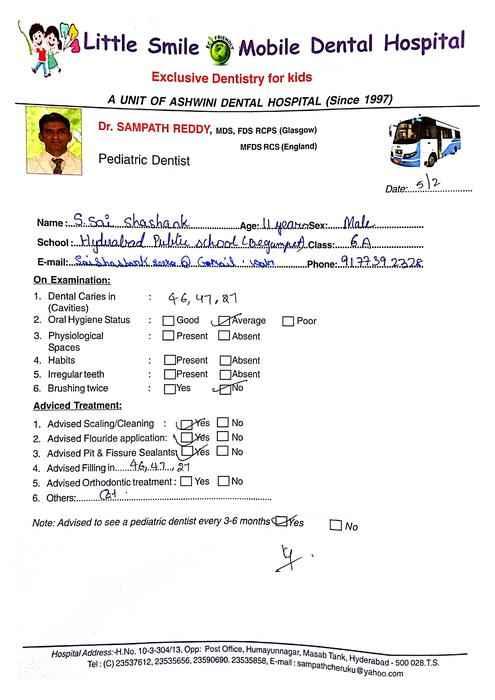 Little Smile Mobile Dental Hospital
Exclusive Dentistry for kids
A UNIT OF ASHWINI DENTAL HOSPITAL (Since 1997)
Dr. SAMPATH REDDY, MDS, FDS RCPS (Glasgow)
MFDS RCS (England)
Pediatric Dentist
Date: 5/2
Name: S. Sai Shashank Age: 11 years Sex: Male
School: Hyderabad Public school (Begumpet) Class: 6 A
E-mail: Phone: 9177392328
On Examination:
1. Dental Caries in (Cavities) : 46, 47, 27
2. Oral Hygiene Status : Good Average Poor
3. Physiological Spaces : Present Absent
4. Habits : Present Absent
5. Irregular teeth : Present Absent
6. Brushing twice : Yes No
Adviced Treatment:
1. Advised Scaling/Cleaning : Yes No
2. Advised Flouride application: Yes No
3. Advised Pit & Fissure Sealants: Yes No
4. Advised Filling in......46, 47, 27
5. Advised Orthodontic treatment : Yes No
6. Others:
Note: Advised to see a pediatric dentist every 3-6 months Yes No
Hospital Address:-H.No. 10-3-304/13, Opp: Post Office, Humayunnagar, Masab Tank, Hyderabad - 500 028.T.S.
Tel : (C) 23537612, 23535656, 23590690. 23535858, E-mail : sampathcheruku@yahoo.com